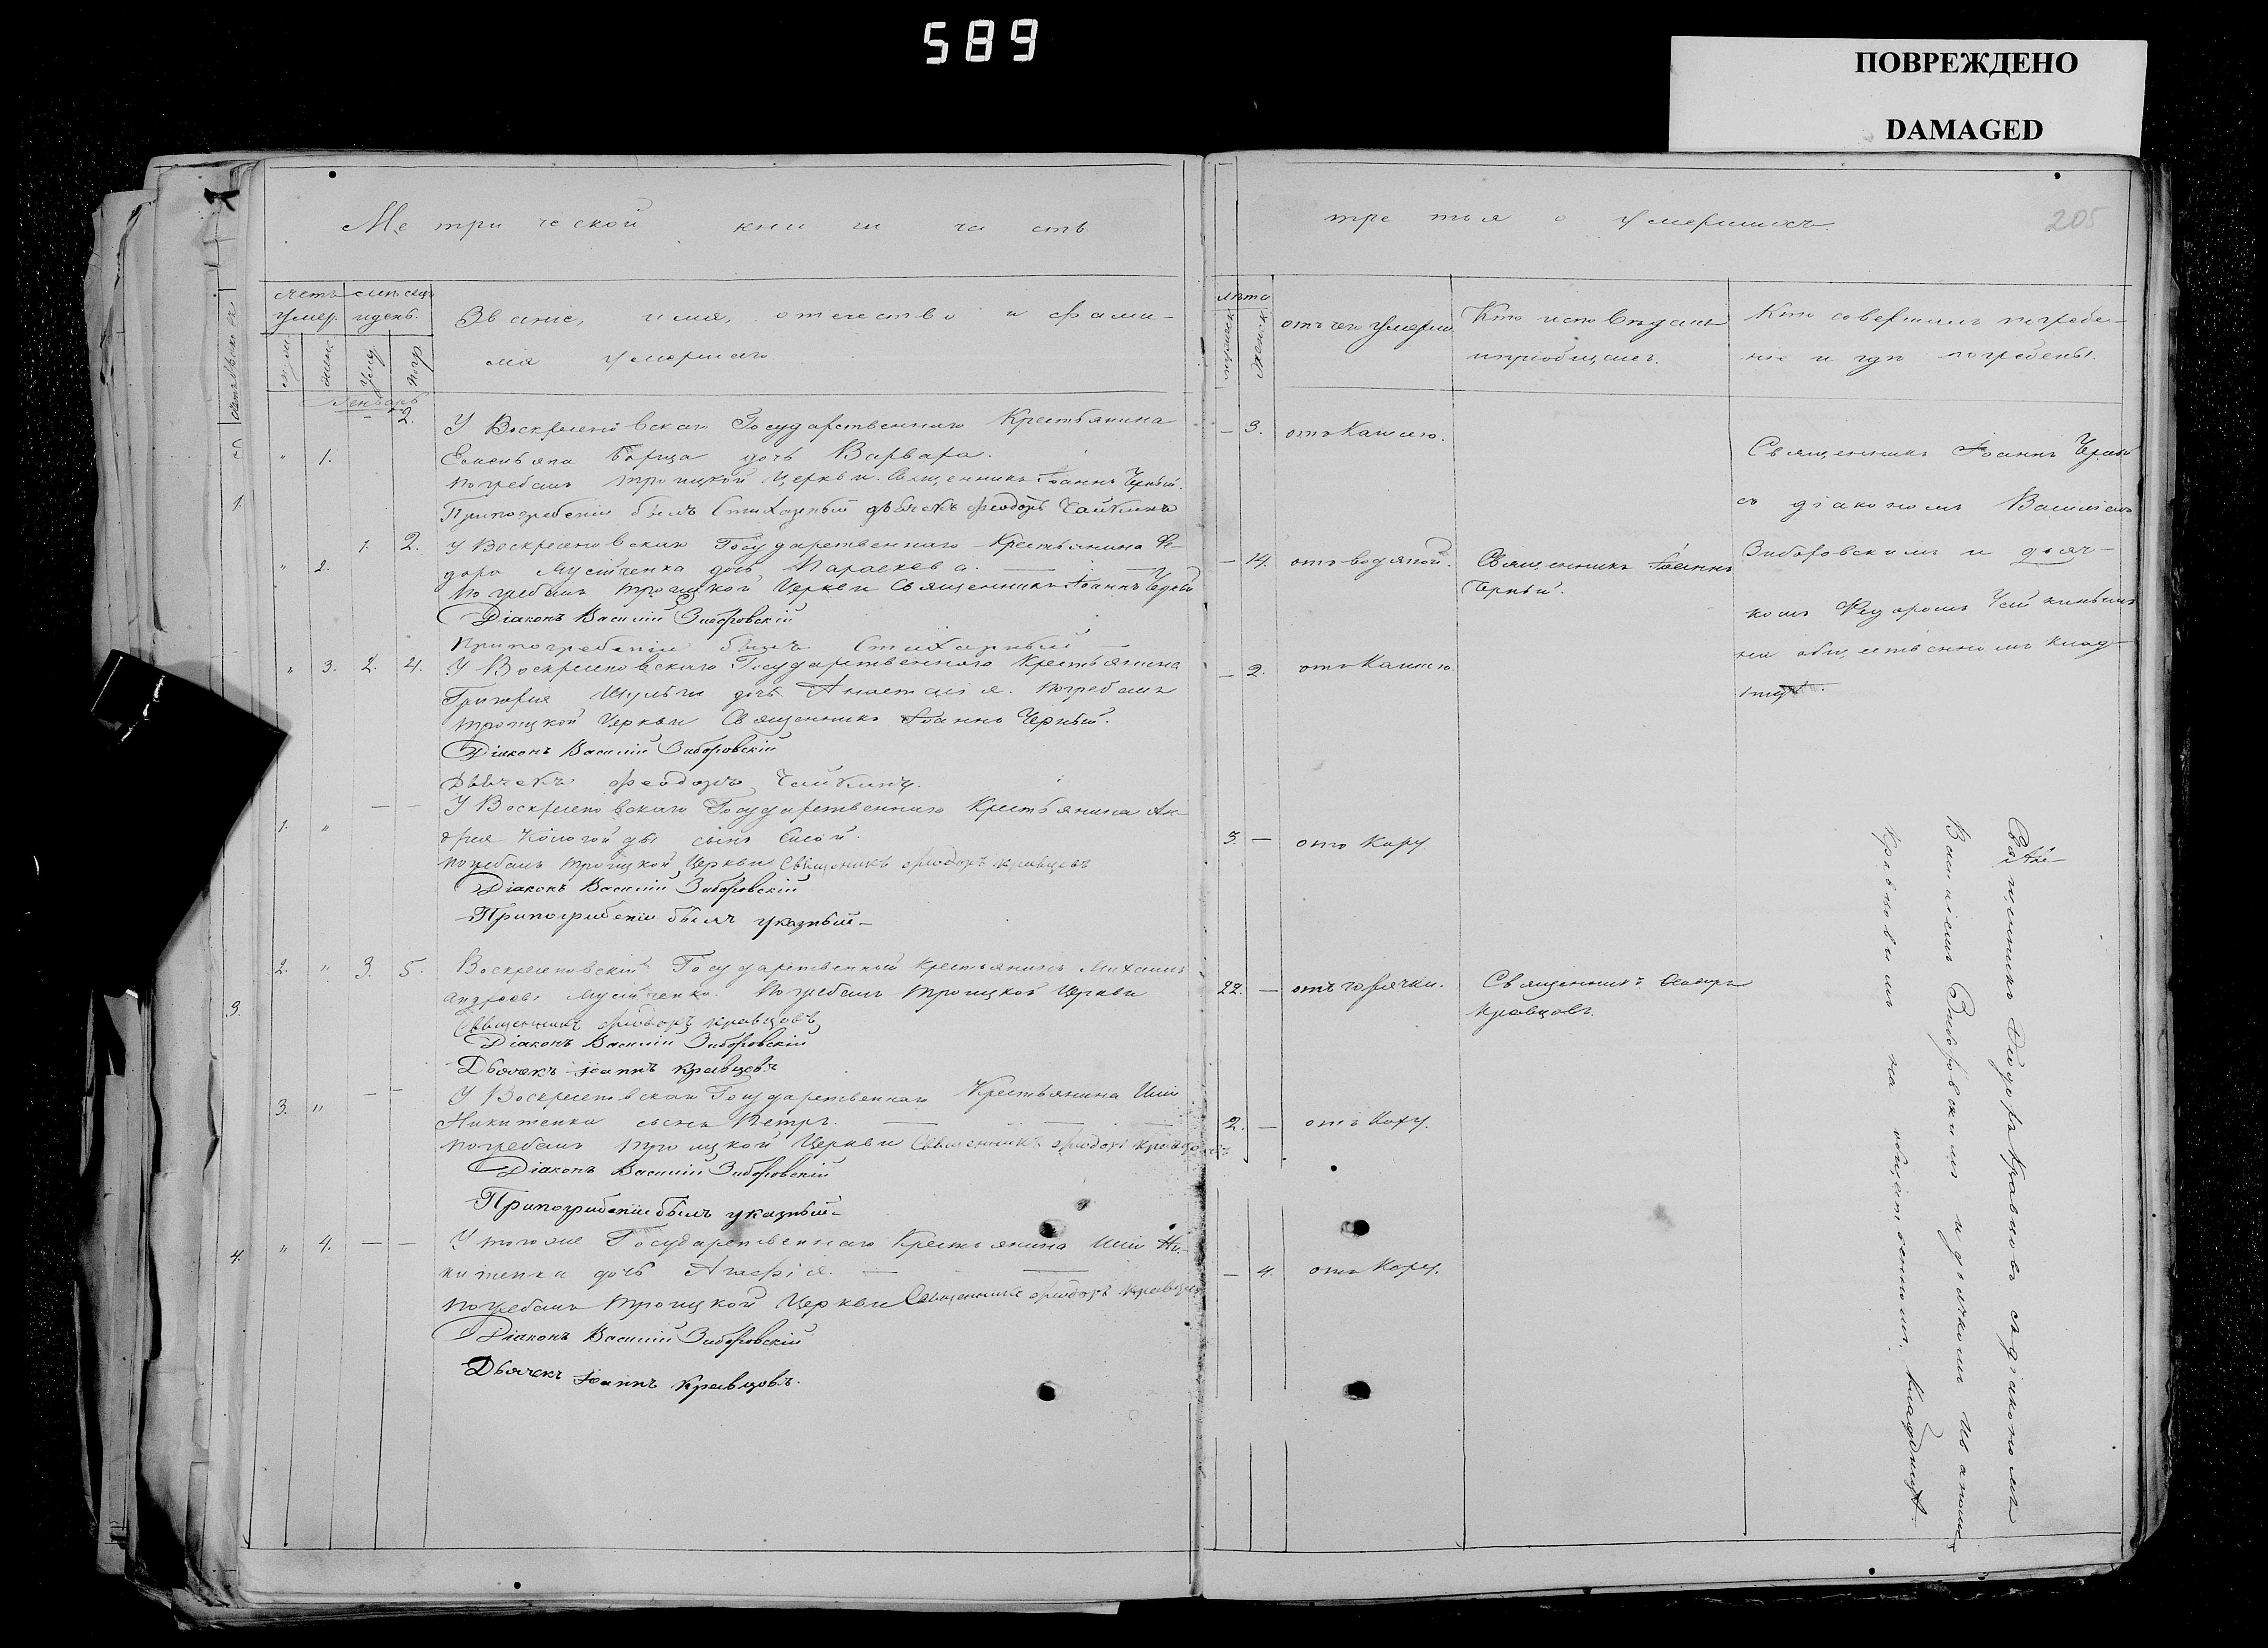 589
ПОВРЕЖДЕНО
DAMAGED
205
Метрической книги часть
третья о умершихъ
счетъ умер.
месяцъ и день
Званіе, имя, отчество и фами-
лія умершаго.
лѣта
отъ чего умерли
Кто исповѣдалъ
и пріобщалъ.
Кто совершалъ погребе-
ніе и гдѣ погребены.
Генварь
" 1. 2.
У Воскресеновскаго Государственнаго Крестьянина
дочь Варвара.
погребалъ Троицкой Церкви Священникъ Іоаннъ Черный.
При погребеніи былъ Стихарный дьячекъ Феодоръ Чайкинъ
— 3. отъ Кашлю.
" 2. 1. 2.
У Воскресеновскаго Государственнаго Крестьянина Фе-
дора Мусіченка дочь Параскева.
погребалъ Троицкой Церкви Священникъ Іоаннъ Черный
Діаконъ Василій Зиборовскій
При погребеніи былъ Стихарный
— 14. отъ водяной.
Священникъ Іоаннъ
Черный.
" 3. 2. 4.
У Воскресеновскаго Государственнаго Крестьянина
Григорія Шульги дочь Анастасія. погребалъ
Троицкой Церкви Священникъ Іоаннъ Черный.
Діаконъ Василій Зиборовскій
Дьячекъ Феодоръ Чайкинъ.
— 2. отъ Кашлю
Священникъ Іоаннъ Черный
съ діакономъ Василіемъ
Зиборовскимъ и дьяч-
комъ Федоромъ Чайкинымъ
на общественномъ клад-
1. " — —
У Воскресеновскаго Государственнаго Крестьянина Ан-
дрея сынъ
погребалъ Троицкой Церкви Священникъ Феодоръ Кравцовъ
Діаконъ Василій Зиборовскій
При погребеніи былъ указный
3. — отъ Кору.
2. " 3. 5.
Воскресеновскій Государственный Крестьянинъ Михаилъ
Андреевъ Мусіченко. погребалъ Троицкой Церкви
Священникъ Феодоръ Кравцовъ
Діаконъ Василій Зиборовскій
Дьячекъ Іоаннъ Кравцовъ
22. — отъ горячки.
Священникъ
Кравцовъ.
3. " — —
У Воскресеновскаго Государственнаго Крестьянина Иліи
Никитенка сынъ Петръ.
погребалъ Троицкой Церкви Священникъ Феодоръ Кравцовъ
Діаконъ Василій Зиборовскій
При погребеніи былъ указный
2. — отъ Кору.
" 4. — —
У тогоже Государственнаго Крестьянина Иліи Ни-
китенка дочь Агафія.
погребалъ Троицкой Церкви Священникъ Феодоръ Кравцовъ
Діаконъ Василій Зиборовскій
Дьячекъ Іоаннъ Кравцовъ.
— 4. отъ Кору.
Священникъ Федоръ Кравцовъ съ діакономъ
Василіемъ Зиборовскимъ и дьячкомъ Иваномъ
Кравцовымъ на общественномъ кладбищѣ